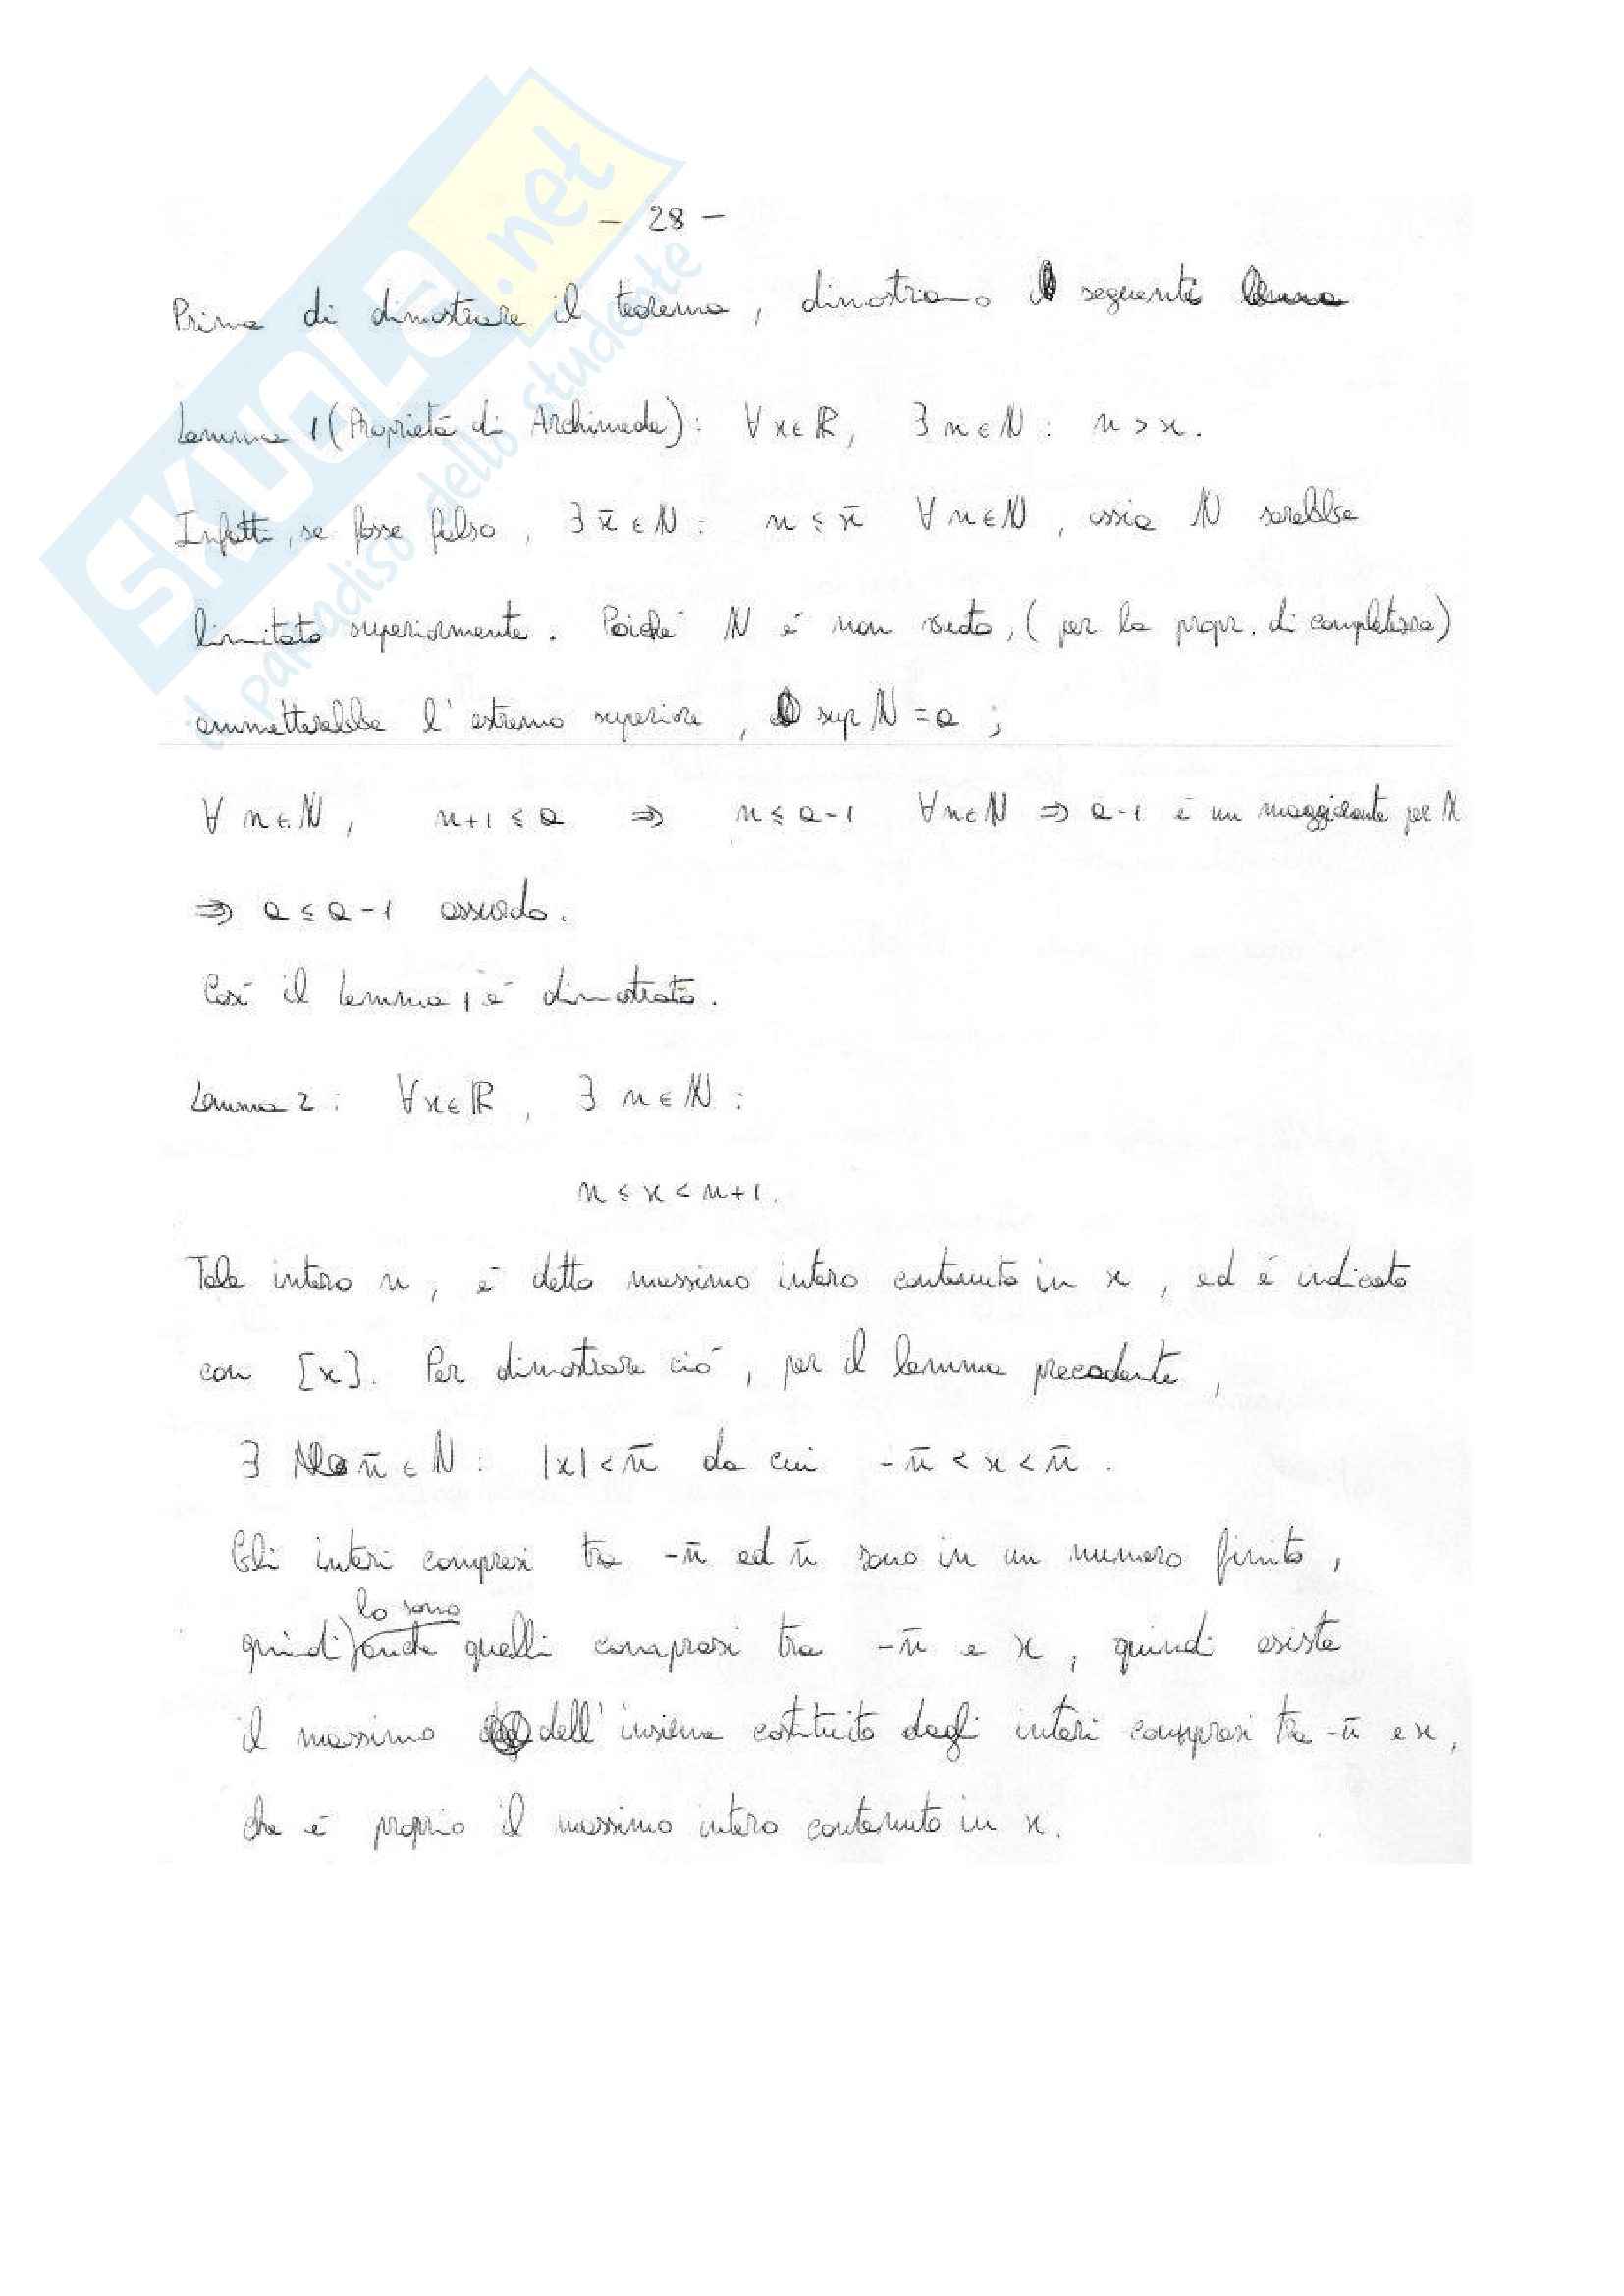 SKUOLA.net
il paradiso dello studente
- 28 -
Prima di dimostrare il teorema, dimostriamo i seguenti lemma
Lemma 1 (Proprietà di Archimede): ∀x∈ℝ, ∃n∈ℕ: n>x.
Infatti, se fosse falso, ∃x̄∈ℕ: n≤x̄ ∀n∈ℕ, ossia ℕ sarebbe
limitato superiormente. Poiché ℕ è non vuoto, (per la propr. di completezza)
ammetterebbe l'estremo superiore, sup ℕ = a;
∀n∈ℕ, n+1≤a ⇒ n≤a-1 ∀n∈ℕ ⇒ a-1 è un maggiorante per ℕ
⇒ a≤a-1 assurdo.
Così il lemma 1 è dimostrato.
Lemma 2: ∀x∈ℝ, ∃n∈ℕ:
n≤x<n+1.
Tale intero n, è detto massimo intero contenuto in x, ed è indicato
con [x]. Per dimostrare ciò, per il lemma precedente,
∃ n̄∈ℕ: |x|<n̄ da cui -n̄<x<n̄.
Gli interi compresi tra -n̄ ed n̄ sono in un numero finito,
quindi lo sono anche quelli compresi tra -n̄ e x, quindi esiste
il massimo dell'insieme costituito dagli interi compresi tra -n̄ e x,
che è proprio il massimo intero contenuto in x.